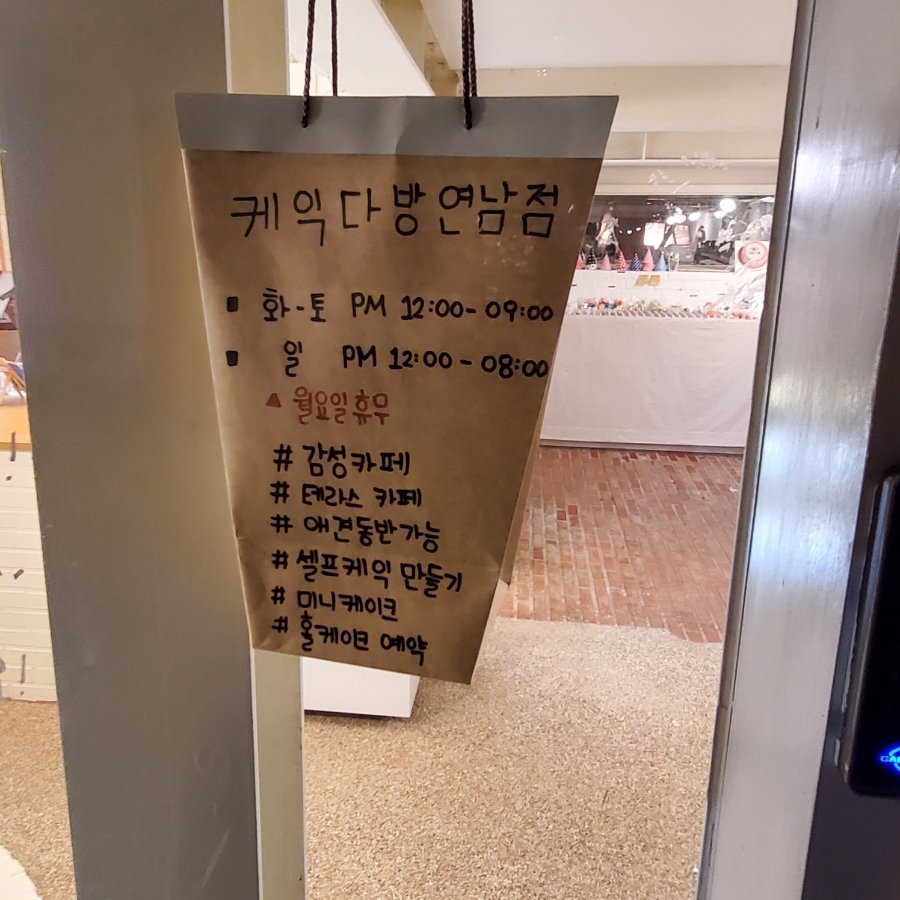 케익다방 연남점
▪ 화-토 PM 12:00-09:00
▪ 일 PM 12:00-08:00
▲ 월요일휴무
# 감성카페
# 테라스 카페
# 애견동반가능
# 셀프케익 만들기
# 미니케이크
# 홀케이크 예약